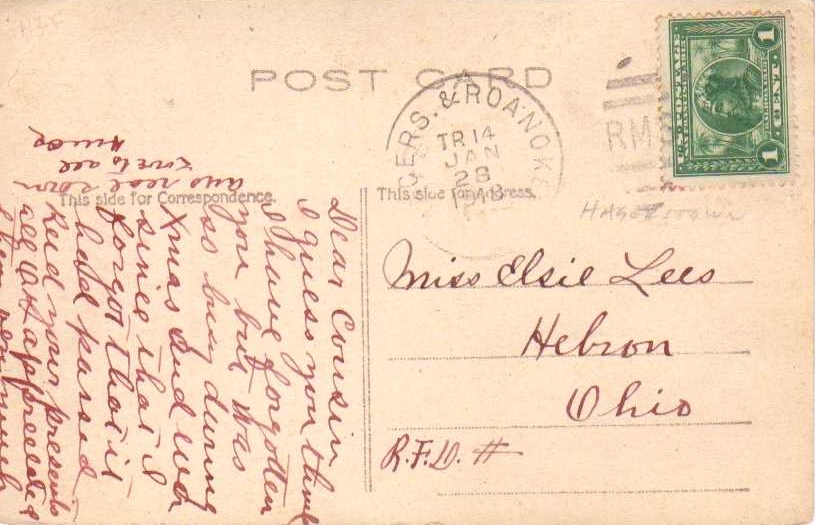 POST CARD
GERS. & ROANOK
TR 14
JAN
28
RM
U.S. POSTAGE
1 CENT 1
HAGERSTOWN
This side for Correspondence.
This side for Address.
Miss Elsie Lees
Hebron
Ohio
R.F.D. #
Dear Cousin
I guess you think
I have forgotten
you but was
so busy during
Xmas and
since that I
forgot that it
had passed
Recd your presents
all O.K. appreciated
very much
ans real soon
Love to all